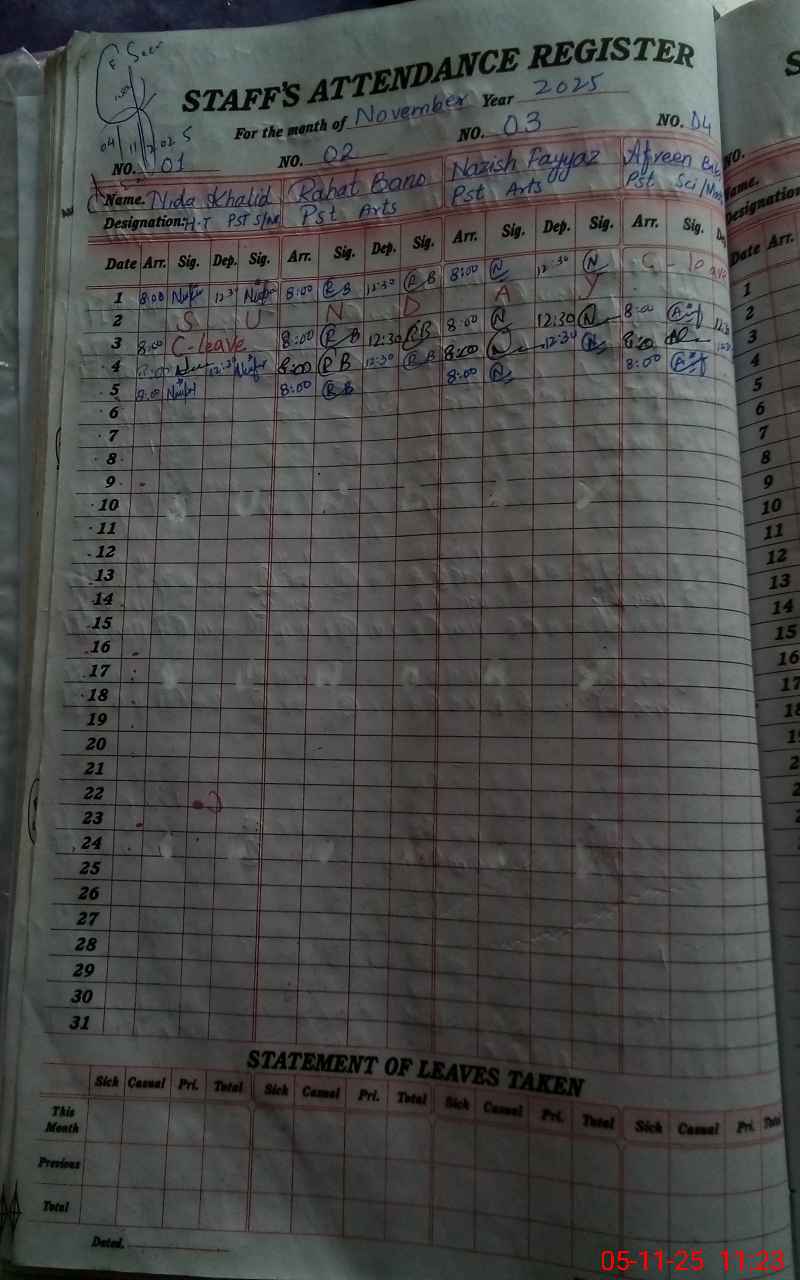 F. Seen
04 11 2025
STAFF'S ATTENDANCE REGISTER
For the month of November Year 2025
NO. 01 NO. 02 NO. 03 NO. 04
Name. Nida Khalid Rahat Bano Nazish Fayyaz Afreen
Designation: H.T PST Pst Arts Pst Arts Pst Sci/
Date Arr. Sig. Dep. Sig. Arr. Sig. Dep. Sig. Arr. Sig. Dep. Sig. Arr. Sig.
1 8:00 12:30 8:00 RB 12:30 RB 8:00 N 12:30 N C-leave
2 S U N D A Y
3 8:00 C-leave 8:00 RB 12:30 RB 8:00 N 12:30 N 8:00
4 8:00 12:30 8:00 RB 12:30 RB 8:00 12:30 N 8:00
5 8:00 8:00 RB 8:00 N 8:00
6
7
8
9
10
11
12
13
14
15
16
17
18
19
20
21
22
23
24
25
26
27
28
29
30
31
STATEMENT OF LEAVES TAKEN
Sick Casual Pri. Total Sick Casual Pri. Total Sick Casual Pri. Total Sick Casual Pri. Total
This Month
Previous
Total
Dated.
S
NO.
Name.
Designation
Date Arr.
1
2
3
4
5
6
7
8
9
10
11
12
13
14
15
16
17
05-11-25 11:23